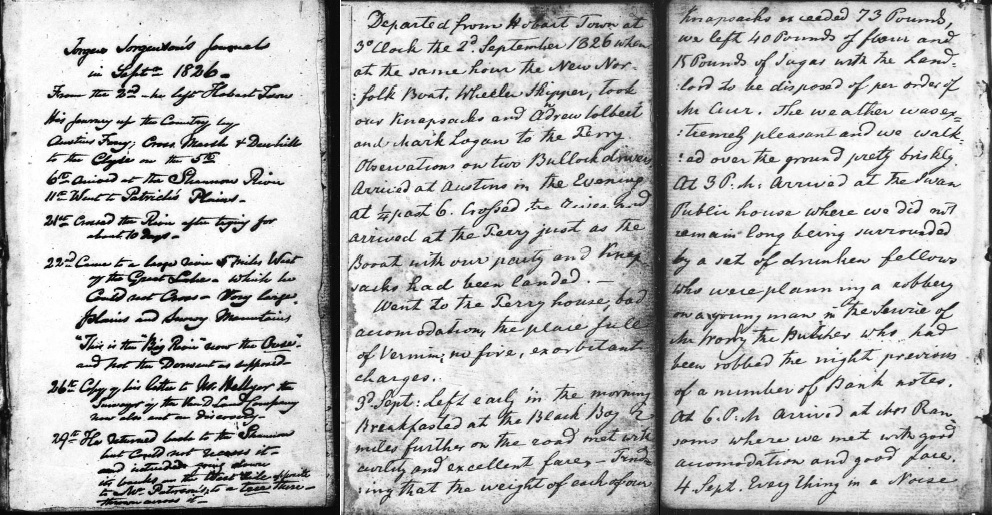 Jorgen Jorgenson's Journals
in Septr 1826 -
From the 2nd - he left Hobart Town
His journey up the Country by
Austins Ferry, Cross Marsh & Den hills
to the Clyde on the 5th
6th Arrived at the Shannon River
11th Went to Patrick's Plains -
21st Crossed the River after trying for
about 10 days -
22nd Came to a large river 5 miles West
of the Great Lake - which he
Could not Cross - Very large
plains and Snowy Mountains
"This is the "Big River" now the Ouse" -
and not the Derwent as supposed -
26th Copy of his letter to Mr. Hellyer the
Surveyor of the Van D Land Company
now also out on discovery -
29th Has returned back to the Shannon
but Could not recross it -
and intended going down
its banks on the West Side opposite
to Mr. Paterson's, to a tree there
thrown across it -
Departed from Hobart Town at
3 o'Clock the 2d. September 1826 when
at the same hour the New Nor-
:folk Boat, Wheeler Skipper, took
our Knapsacks and Adrew Colbert
and Mark Logan to the Ferry.
Observations on two Bullock drivers
Arrived at Austins in the Evening
at 1/4 past 6. Crossed the and
arrived at the Ferry just as the
Boat with our party and Knap
sacks had been landed. -
Went to the Ferry house, bad
accomodation, the place full
of Vermin; no fire, exorbitant
charges.
3d Sept: Left early in the morning
Breakfasted at the Black Boy 2
miles further on the road met with
civility and excellent fare, - Find-
:ing that the weight of each of our
Knapsacks exceeded 73 Pounds,
we left 40 Pounds of flour and
15 Pounds of Sugar with the Land=
:lord to be disposed of per order of
Mr Curr. The weather was ex=
:tremely pleasant and we walk
:ed over the ground pretty briskly.
At 3 P.M: Arrived at the Swan
Public house where we did not
remain long being surrounded
by a set of drunken fellows
who were planning a robbery
on a young man in the Service of
Mr the Butcher who had
been robbed the night previous
of a number of Bank notes.
At 6. P.M arrived at Mrs Ran
soms where we met with good
accomodation and good fare.
4 Sept. Every thing in a Noise